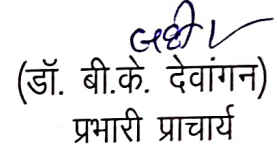 (डॉ. बी.के. देवांगन)
प्रभारी प्राचार्य